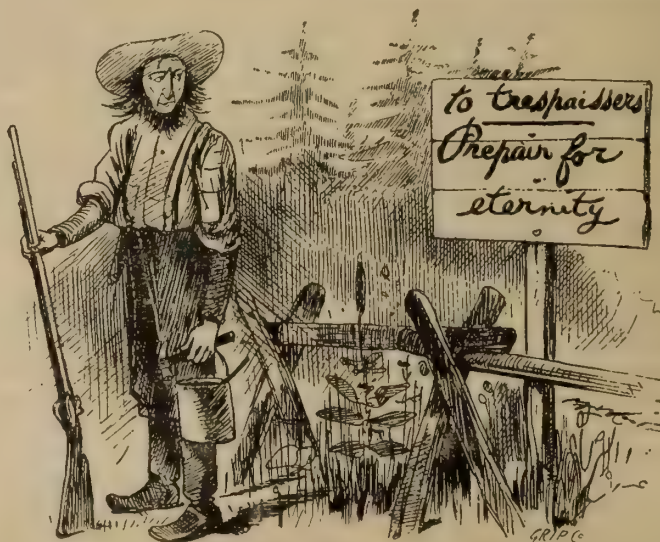 to trespaissers
Prepair for
eternity
GRIP Co